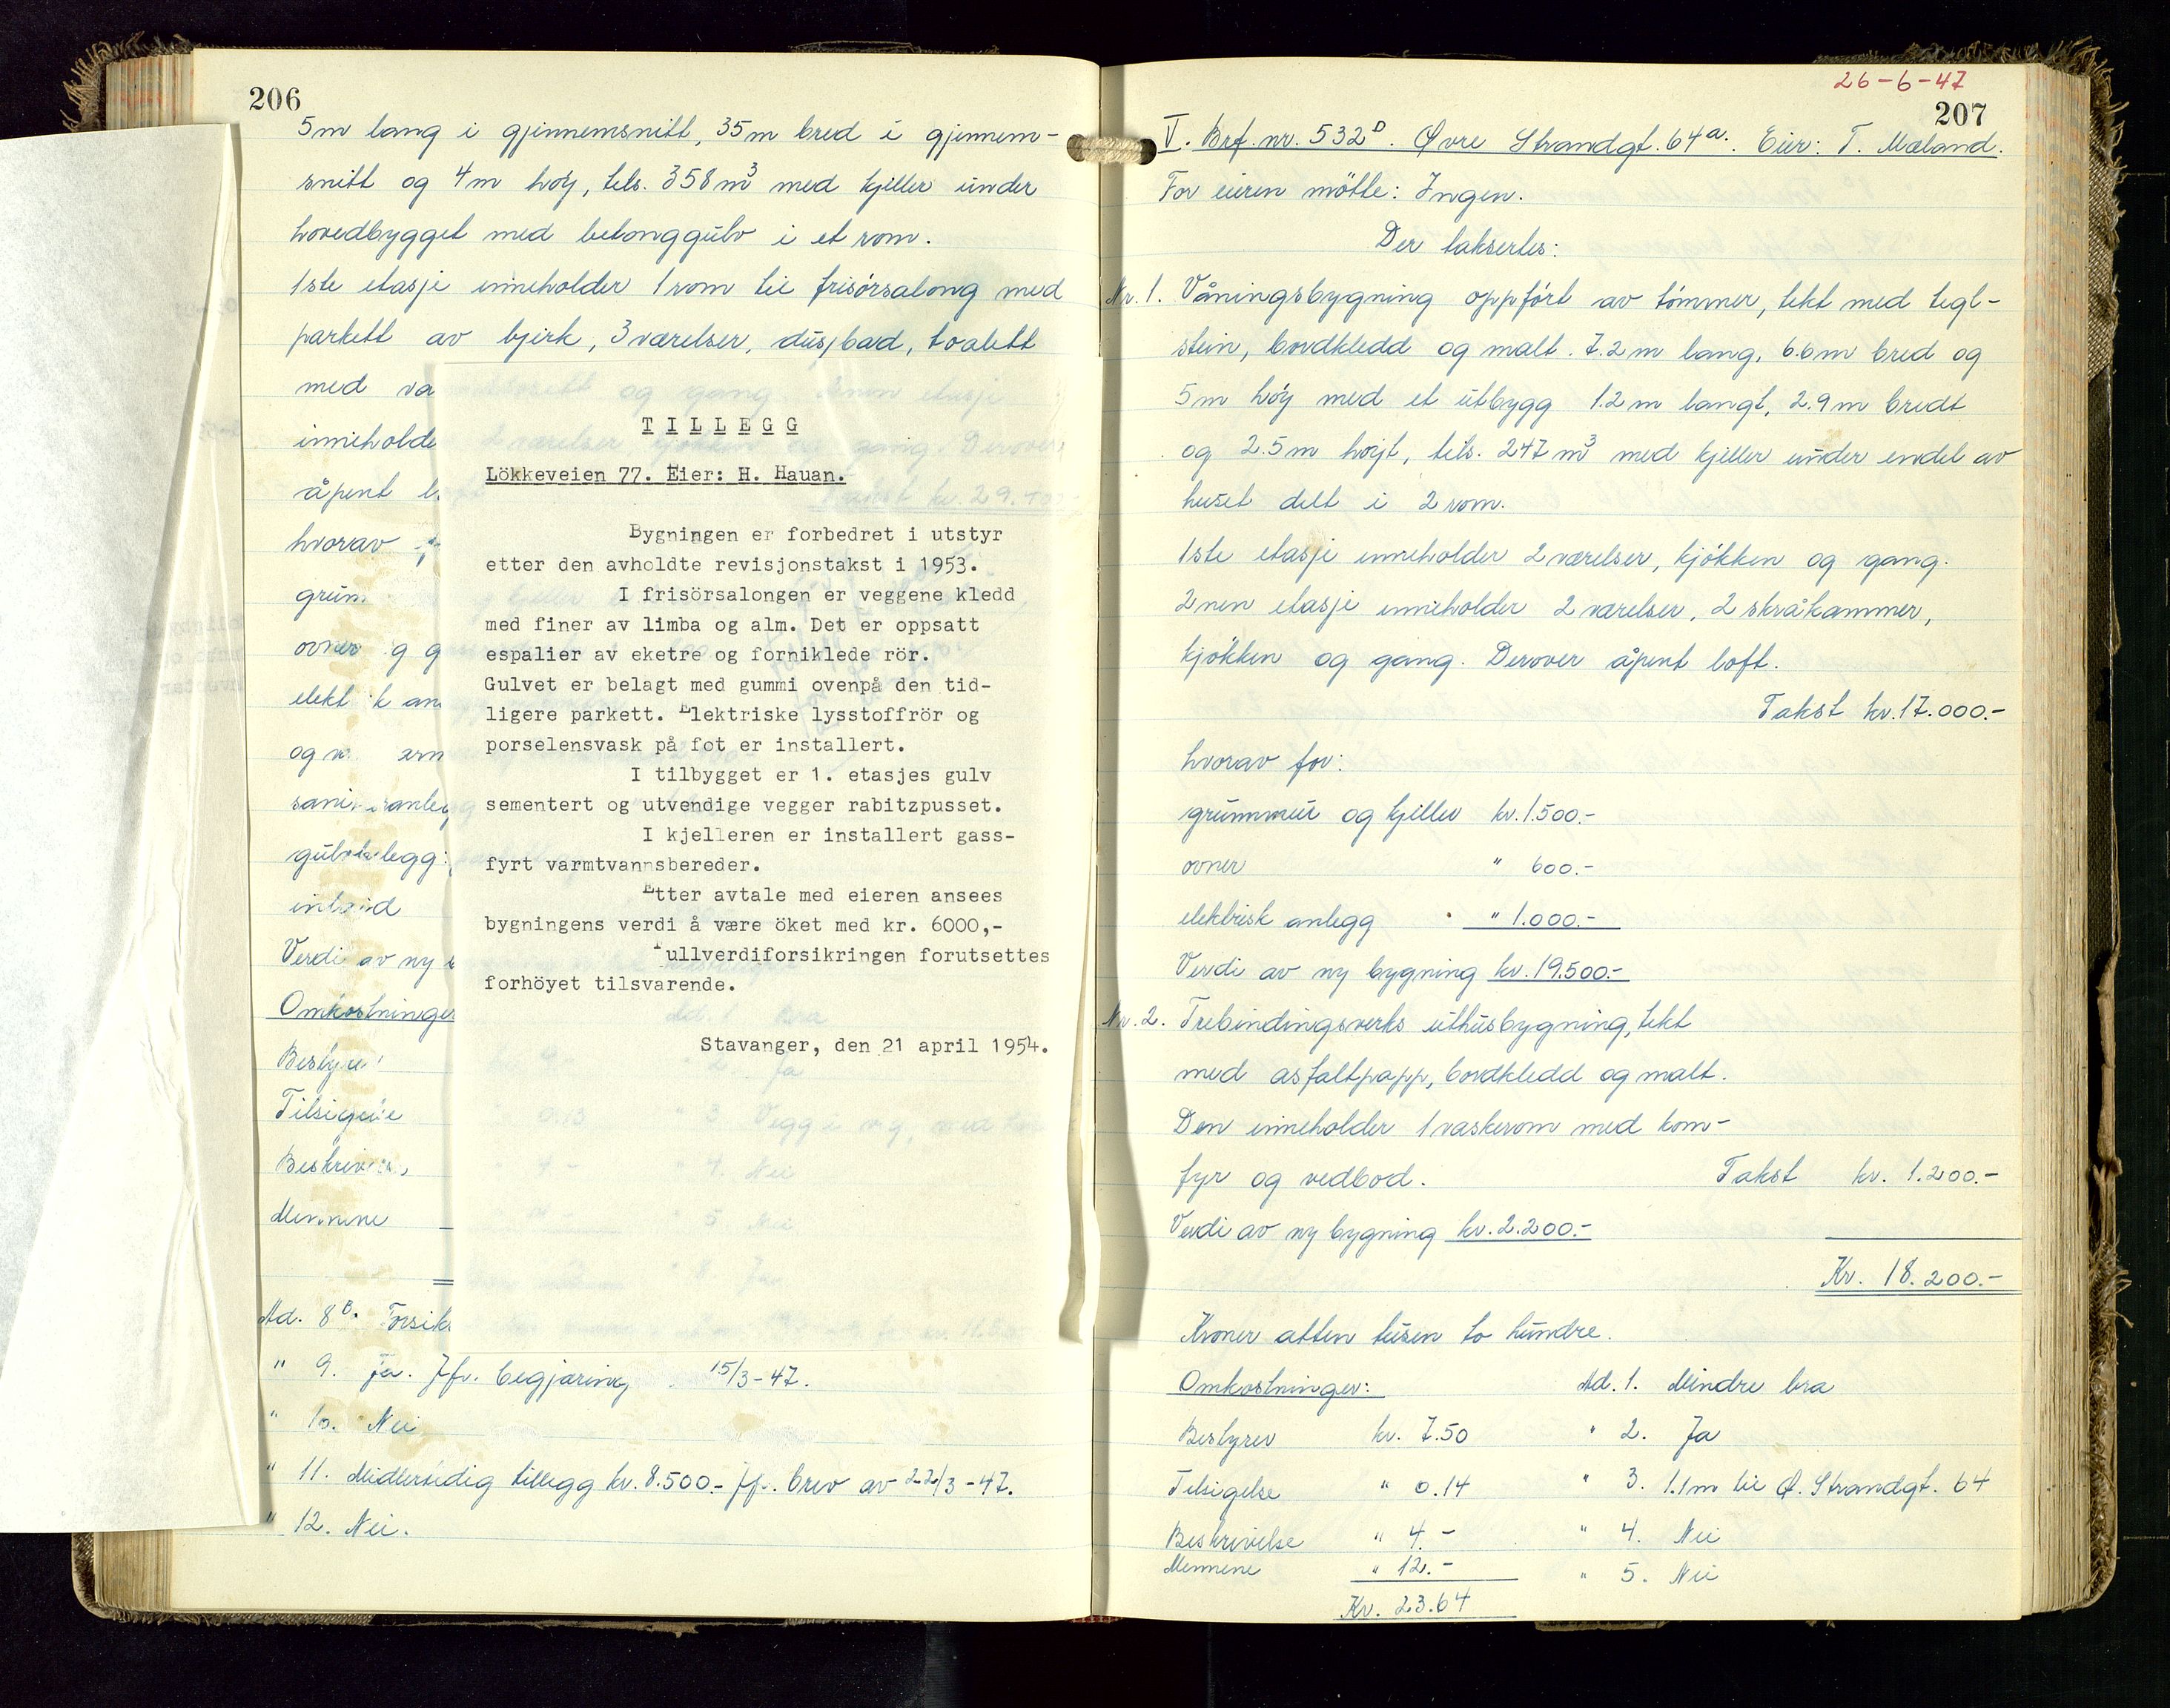 206
5m lang i gjennemsnitt, 35m bred i gjennem-
snitt og 4m høy, tils. 358 m³ med kjeller under
hovedbygget med betonggulv i et rom.
1ste etasje inneholder 1 rom til frisørsalong med
parkett av bjerk, 3 værelser, dusjbad, toalett
med va
inneholde
åpent l
hvorav
grun
ovner g g
elekt k an
og v. ern
sani anleg
gulvbelegg:
innbo
Verdi av ny
Omkostninger
Bestyrer
Tilsigelse
Beskrivels
Mennene
Ad. 8B. Forsik
" 9. Ja. Jfr. begjæring 15/3-47.
" 10. Nei
" 11. Midlertidig tillegg kr. 8.500.- Jfr. brev av 22/3-47.
" 12. Nei.
TILLEGG
Lökkeveien 77. Eier: H. Hauan.
Bygningen er forbedret i utstyr
etter den avholdte revisjonstakst i 1953.
I frisörsalongen er veggene kledd
med finer av limba og alm. Det er oppsatt
espalier av eketre og forniklede rör.
Gulvet er belagt med gummi ovenpå den tid-
ligere parkett. Elektriske lysstoffrör og
porselensvask på fot er installert.
I tilbygget er 1. etasjes gulv
sementert og utvendige vegger rabitzpusset.
I kjelleren er installert gass-
fyrt varmtvannsbereder.
Etter avtale med eieren ansees
bygningens verdi å være öket med kr. 6000,-
Fullverdiforsikringen forutsettes
forhöyet tilsvarende.
Stavanger, den 21 april 1954.
26-6-47
207
V. Brf. nr. 532D. Øvre Strandgt. 64a. Eier: T. Mæland.
For eieren møtte: Ingen.
Der taksertes:
Nr. 1. Våningsbygning oppført av tømmer, tekt med tegl-
stein, bordkledd og malt. 7.2m lang, 6.6m bred og
5m høy med et utbygg 1.2m langt, 2.9m bredt
og 2.5m høyt, tils. 247 m³ med kjeller under endel av
huset delt i 2 rom.
1ste etasje inneholder 2 værelser, kjøkken og gang.
2nen etasje inneholder 2 værelser, 2 skråkammer,
kjøkken og gang. Derover åpent loft.
Takst kr. 17.000.-
hvorav for:
grunnmur og kjeller kr. 1.500.-
ovner " 600.-
elektrisk anlegg " 1.000.-
Verdi av ny bygning kr. 19.500.-
Nr. 2. Trebindingsverks uthusbygning, tekt
med asfaltpapp, bordkledd og malt.
Den inneholder 1 vaskerom med kom-
fyr og vedbod. Takst kr. 1.200.-
Verdi av ny bygning kr. 2.200.-
Kr. 18.200.-
Kroner atten tusen to hundre.
Omkostninger: Ad. 1. Mindre bra
Bestyrer kr. 7.50 " 2. Ja
Tilsigelse " 0.14 " 3. 1.1m til Ø. Strandgt. 64
Beskrivelse " 4.- " 4. Nei
Mennene " 12.- " 5. Nei
Kr. 23.64